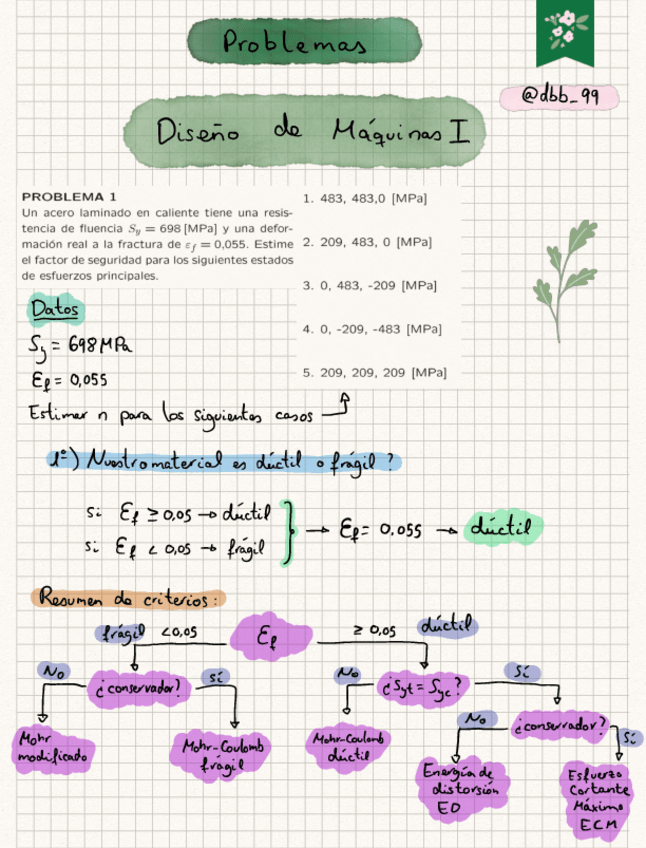 Problemas
@dbb_99
Diseño de Máquinas I
PROBLEMA 1
Un acero laminado en caliente tiene una resis-
tencia de fluencia Sy = 698 [MPa] y una defor-
mación real a la fractura de εf = 0,055. Estime
el factor de seguridad para los siguientes estados
de esfuerzos principales.
1. 483, 483,0 [MPa]
2. 209, 483, 0 [MPa]
3. 0, 483, -209 [MPa]
4. 0, -209, -483 [MPa]
5. 209, 209, 209 [MPa]
Datos
Sy = 698 MPa
Ef = 0,055
Estimar n para los siguientes casos
1º) Nuestro material es dúctil o frágil?
si Ef ≥ 0,05 → dúctil
si Ef < 0,05 → frágil
→ Ef = 0.055 → dúctil
Resumen de criterios:
frágil <0,05 Ef ≥ 0,05 dúctil
No ¿conservador? Sí
No ¿Syt = Syc? Sí
Mohr modificado
Mohr-Coulomb frágil
Mohr-Coulomb dúctil
No ¿conservador? Sí
Energía de
distorsión
ED
Esfuerzo
Cortante
Máximo
ECM